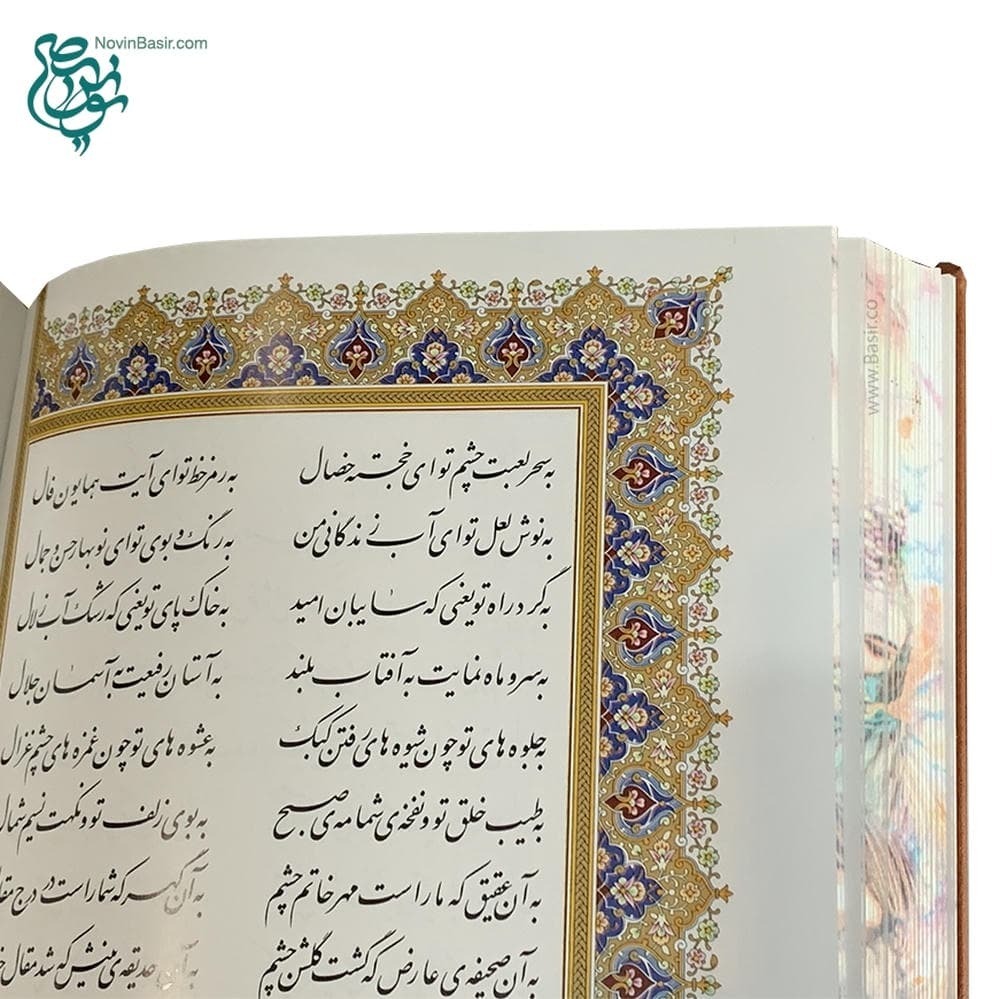 NovinBasir.com
نوین بصیر
www.Basir.co
به سحر لعبت چشم تو ای خجسته خصال به رمز خط تو ای آیت همایون فال
به نوش لعل تو ای آب زندگانی من به رنگ و بوی تو ای نوبهار حسن و جمال
به گرد راه تو یعنی که سایبان امید به خاک پای تو یعنی که رشک آب زلال
به سرو ماه نمایت به آفتاب بلند به آستان رفیعت به آسمان جلال
به جلوه های تو چون شیوه های رفتن کبک به عشوه های تو چون غمزه های چشم غزال
به طیب خلق تو و نفخه ی شمامه ی صبح به بوی زلف تو و نکهت نسیم شمال
به آن عقیق که ما راست مهر خاتم چشم به آن گهر که شما راست در درج
به آن صحیفه ی عارض که گشت گلشن چشم به آن حدیقه ی بینش که شد مقال